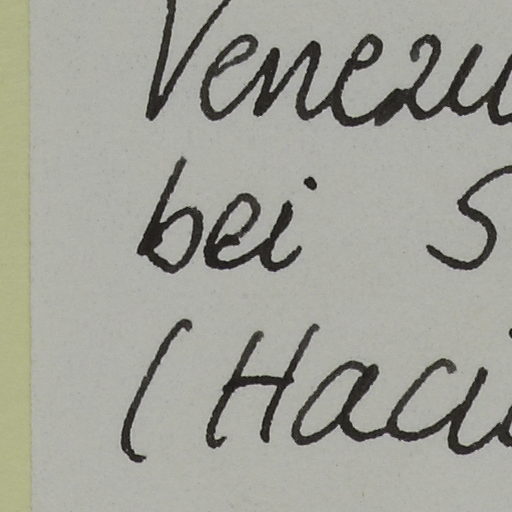 Venezu
bei S
(Haci